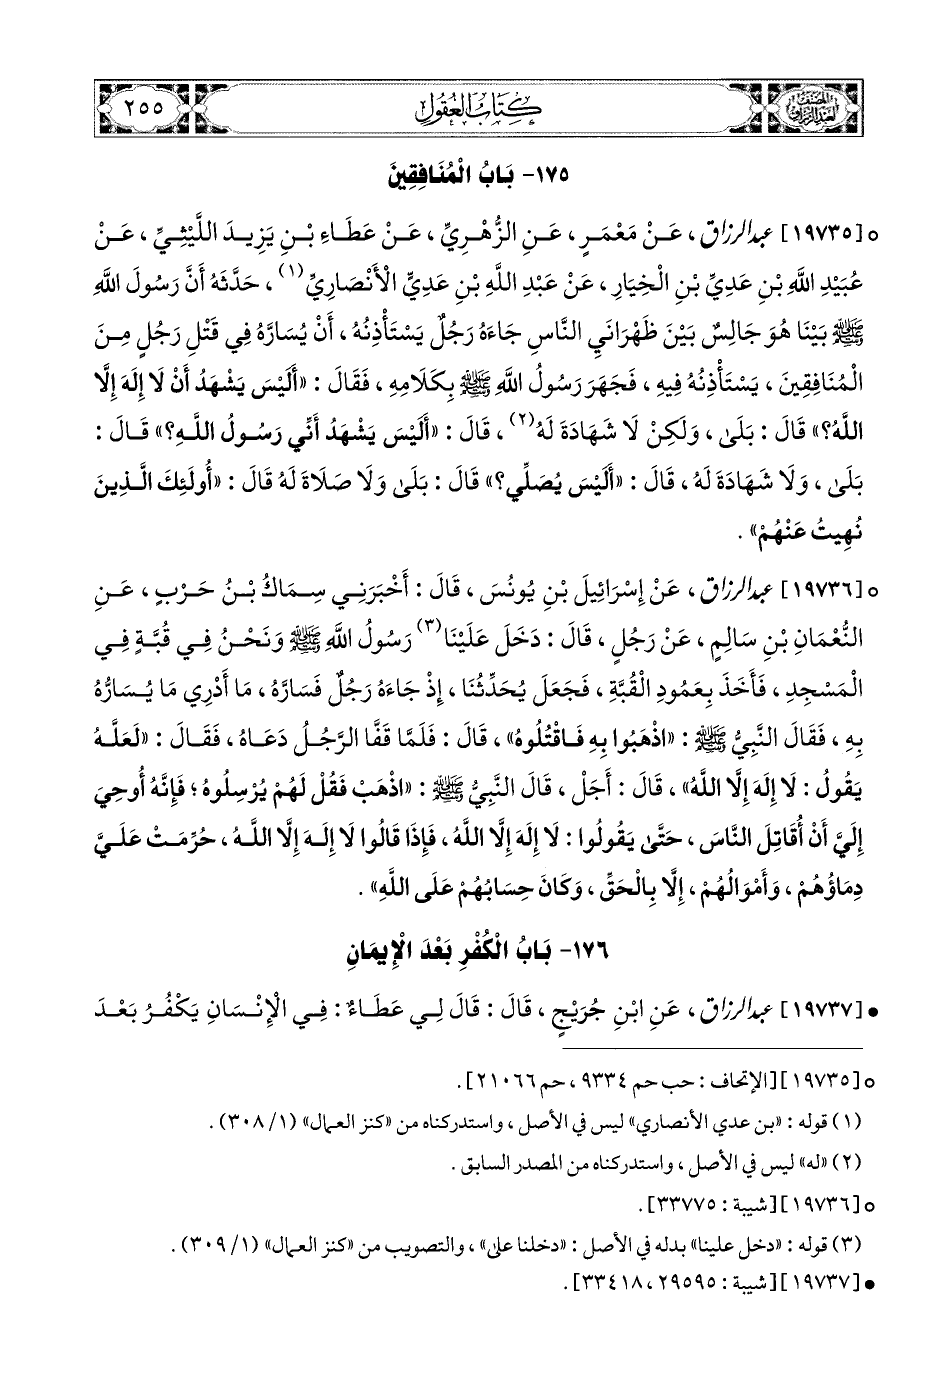 المصنف لعبد الرزاق
كتاب العقول
٢٥٥
١٧٥- بَابُ الْمُنَافِقِينَ
○ [١٩٧٣٥] عبد الرزاق ، عَنْ مَعْمَرٍ ، عَنِ الزُّهْرِيِّ ، عَنْ عَطَاءِ بْنِ يَزِيدَ اللَّيْثِيِّ ، عَنْ
عُبَيْدِ اللَّهِ بْنِ عَدِيِّ بْنِ الْخِيَارِ ، عَنْ عَبْدِ اللَّهِ بْنِ عَدِيٍّ الْأَنْصَارِيِّ(١) ، حَدَّثَهُ أَنَّ رَسُولَ اللَّهِ
ﷺ بَيْنَا هُوَ جَالِسٌ بَيْنَ ظَهْرَانَيِ النَّاسِ جَاءَهُ رَجُلٌ يَسْتَأْذِنُهُ ، أَنْ يُسَارَّهُ فِي قَتْلِ رَجُلٍ مِنَ
الْمُنَافِقِينَ ، يَسْتَأْذِنُهُ فِيهِ ، فَجَهَرَ رَسُولُ اللَّهِ ﷺ بِكَلَامِهِ ، فَقَالَ : «أَلَيْسَ يَشْهَدُ أَنْ لَا إِلَهَ إِلَّا
اللَّهُ؟» قَالَ : بَلَى ، وَلَكِنْ لَا شَهَادَةَ لَهُ(٢) ، قَالَ : «أَلَيْسَ يَشْهَدُ أَنِّي رَسُولُ اللَّهِ؟» قَالَ :
بَلَى ، وَلَا شَهَادَةَ لَهُ ، قَالَ : «أَلَيْسَ يُصَلِّي؟» قَالَ : بَلَى وَلَا صَلَاةَ لَهُ قَالَ : «أُولَئِكَ الَّذِينَ
نُهِيتُ عَنْهُمْ» .
○ [١٩٧٣٦] عبد الرزاق ، عَنْ إِسْرَائِيلَ بْنِ يُونُسَ ، قَالَ : أَخْبَرَنِي سِمَاكُ بْنُ حَرْبٍ ، عَنِ
النُّعْمَانِ بْنِ سَالِمٍ ، عَنْ رَجُلٍ ، قَالَ : دَخَلَ عَلَيْنَا(٣) رَسُولُ اللَّهِ ﷺ وَنَحْنُ فِي قُبَّةٍ فِي
الْمَسْجِدِ ، فَأَخَذَ بِعَمُودِ الْقُبَّةِ ، فَجَعَلَ يُحَدِّثُنَا ، إِذْ جَاءَهُ رَجُلٌ فَسَارَّهُ ، مَا أَدْرِي مَا يُسَارُّهُ
بِهِ ، فَقَالَ النَّبِيُّ ﷺ : «اذْهَبُوا بِهِ فَاقْتُلُوهُ» ، قَالَ : فَلَمَّا قَفَّا الرَّجُلُ دَعَاهُ ، فَقَالَ : «لَعَلَّهُ
يَقُولُ : لَا إِلَهَ إِلَّا اللَّهُ» ، قَالَ : أَجَلْ ، قَالَ النَّبِيُّ ﷺ : «اذْهَبْ فَقُلْ لَهُمْ يُرْسِلُوهُ ؛ فَإِنَّهُ أُوحِيَ
إِلَيَّ أَنْ أُقَاتِلَ النَّاسَ ، حَتَّى يَقُولُوا : لَا إِلَهَ إِلَّا اللَّهُ ، فَإِذَا قَالُوا لَا إِلَهَ إِلَّا اللَّهُ ، حُرِّمَتْ عَلَيَّ
دِمَاؤُهُمْ ، وَأَمْوَالُهُمْ ، إِلَّا بِالْحَقِّ ، وَكَانَ حِسَابُهُمْ عَلَى اللَّهِ» .
١٧٦- بَابُ الْكُفْرِ بَعْدَ الْإِيمَانِ
● [١٩٧٣٧] عبد الرزاق ، عَنِ ابْنِ جُرَيْجٍ ، قَالَ : قَالَ لِي عَطَاءٌ : فِي الْإِنْسَانِ يَكْفُرُ بَعْدَ
○ [١٩٧٣٥] [الإتحاف : حب حم ٩٣٣٤ ، حم ٢١٠٦٦] .
(١) قوله : «بن عدي الأنصاري» ليس في الأصل ، واستدركناه من «كنز العمال» (١/ ٣٠٨) .
(٢) «له» ليس في الأصل ، واستدركناه من المصدر السابق .
○ [١٩٧٣٦] [شيبة : ٣٣٧٧٥] .
(٣) قوله : «دخل علينا» بدله في الأصل : «دخلنا على» ، والتصويب من «كنز العمال» (١/ ٣٠٩) .
● [١٩٧٣٧] [شيبة : ٢٩٥٩٥ ، ٣٣٤١٨] .